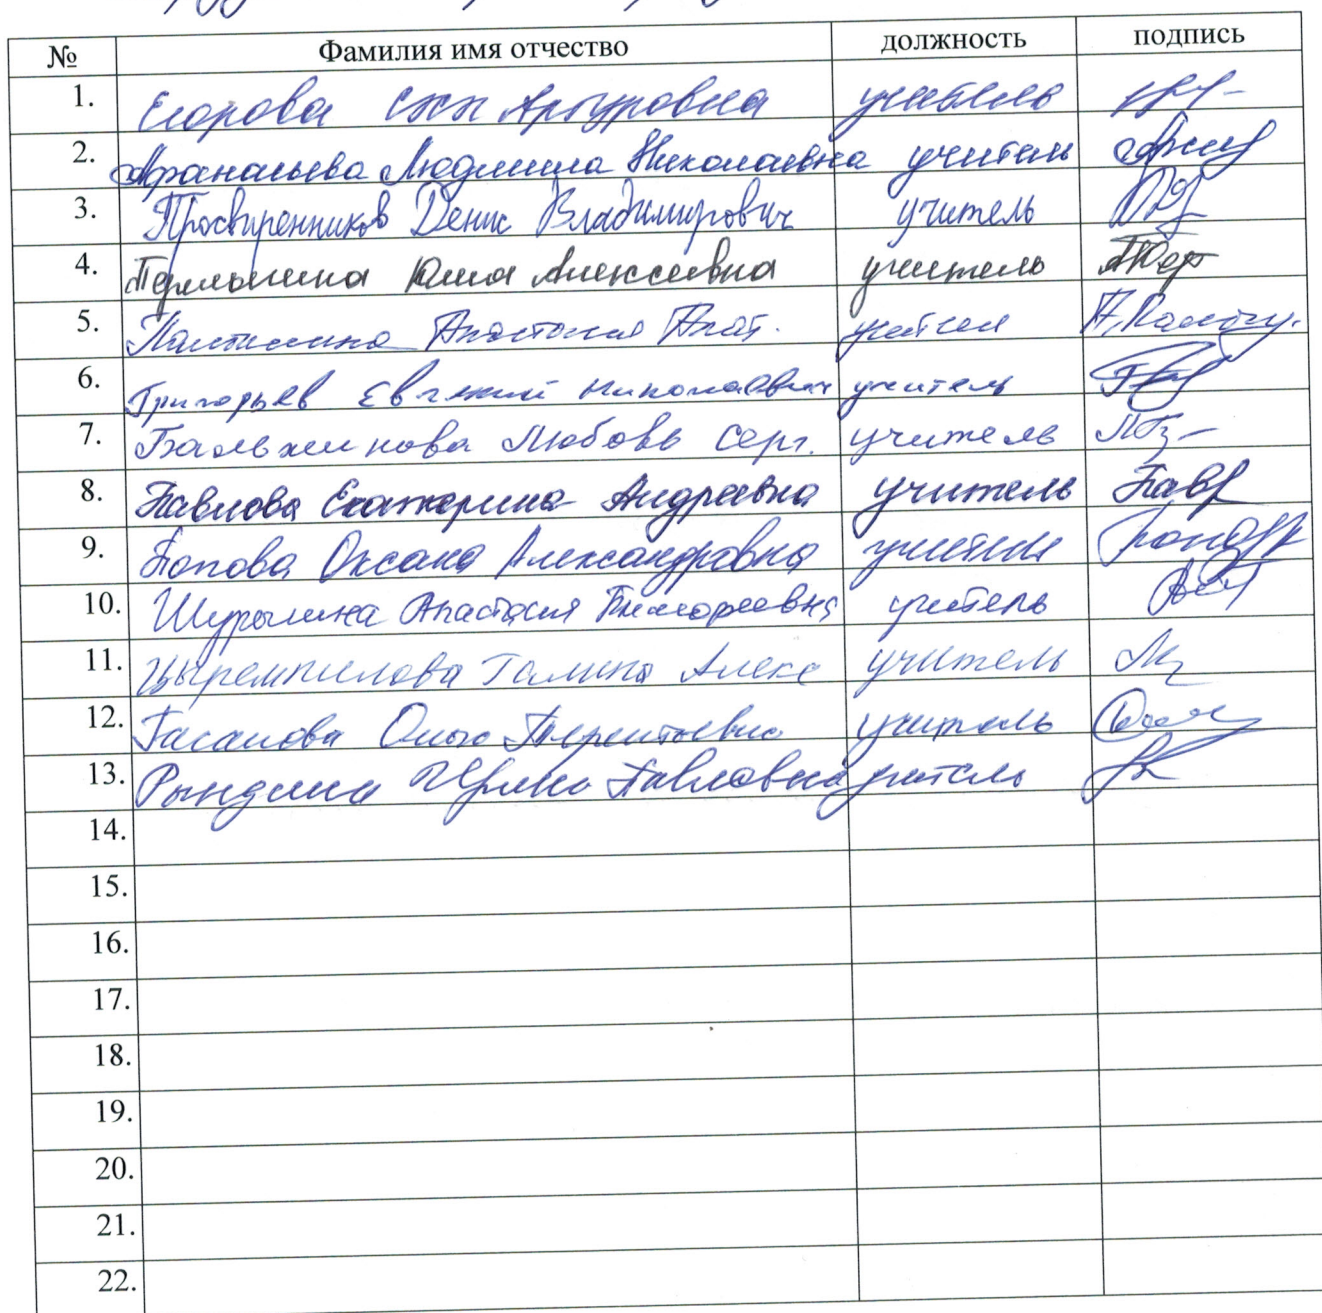 № Фамилия имя отчество должность подпись
1. Егорова Артуровна учитель
2. Афанасьева Людмила Николаевна учитель
3. Просвиренников Денис Владимирович учитель
4. Юлия Алексеевна учитель
5. Анастасия учитель
6. Григорьев Евгений Николаевич учитель
7. Бальжинова Любовь Серг. учитель
8. Павлова Екатерина Андреевна учитель Павл
9. Попова Оксана Александровна учитель
10. Шурыгина Анастасия Тимофеевна учитель
11. Цыремпилова Галина Алекс учитель
12. Гасанова Ольга Терентьевна учитель
13. Рындина Ирина Павловна учитель
14.
15.
16.
17.
18.
19.
20.
21.
22.